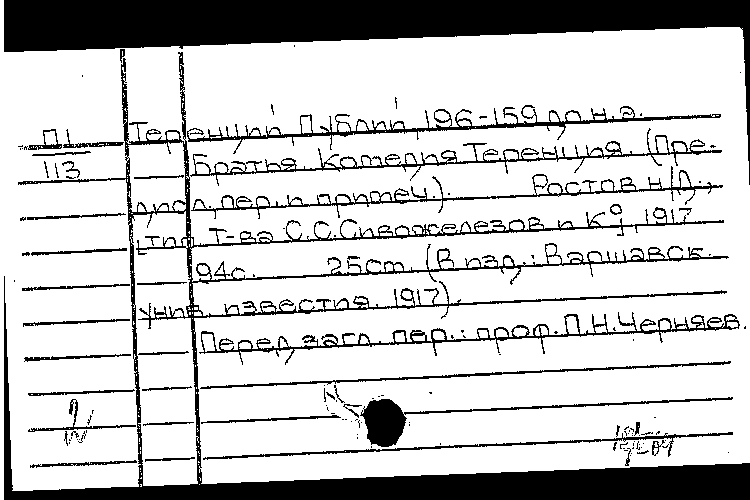 П1
113
Теренций, Публий, 196-159 до н.э.
Братья. Комедия Теренция. (Пре-
дисл., пер. и примеч.). Ростов н/Д.,
тип. Т-ва С.С.Сивожелезов и Кº, 1917
94с. 25см. (В изд.: Варшавск.
унив. известия. 1917).
Перед загл. пер.: проф. П.Н.Черняев.